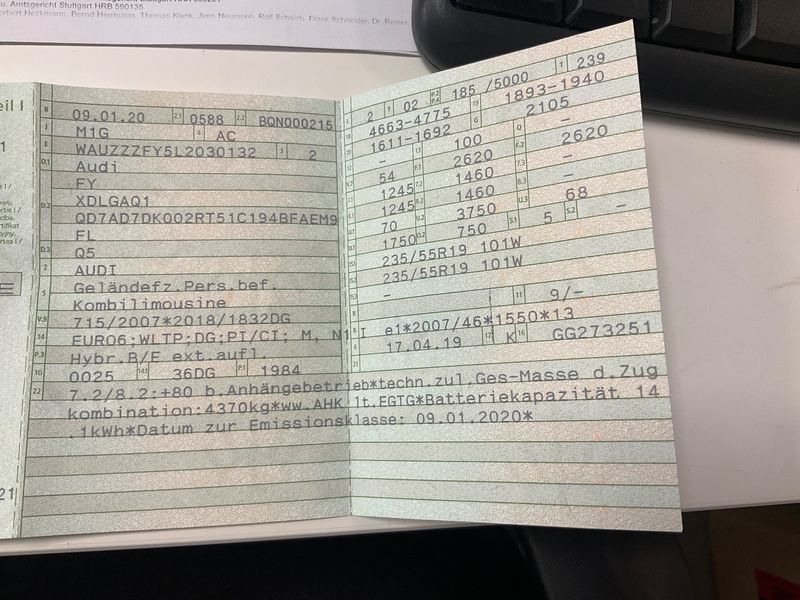 Amtsgericht Stuttgart HRB 590135
Heckmann, Bernd Herrmann, Thomas Klenk, Jens Neumann, Ralf Schaich, Frank Schneider, Dr. Reiner
eil I
B 09.01.20 2.1 0588 2.2 BQN000215
J M1G 4 AC
E WAUZZZFY5L2030132 3 2
D.1 Audi
FY
D.2 XDLGAQ1
QD7AD7DK002RT51C194BFAEM9
FL
D.3 Q5
2 AUDI
5 Geländefz.Pers.bef.
Kombilimousine
V.9 715/2007*2018/1832DG
14 EURO6;WLTP;DG;PI/CI; M, N1 I
P.3 Hybr.B/F ext.aufl.
10 0025 14.1 36DG P.1 1984
22 7.2/8.2:+80 b.Anhängebetrieb*techn.zul.Ges-Masse d.Zug
kombination:4370kg*ww.AHK lt.EGTG*Batteriekapazität 14
.1kWh*Datum zur Emissionsklasse: 09.01.2020*
2 9 02 P.2 P.4 185 /5000 T 239
4663-4775 19 1893-1940
1611-1692 G 2105
– 100 Q –
54 2620 F.2 2620
1245 1460 –
1245 1460 –
70 U.2 3750 U.3 68
1750 750 S.1 5 S.2 –
235/55R19 101W
235/55R19 101W
–
11 9/–
K e1*2007/46*1550*13
6 17.04.19 17 K 16 GG273251
21